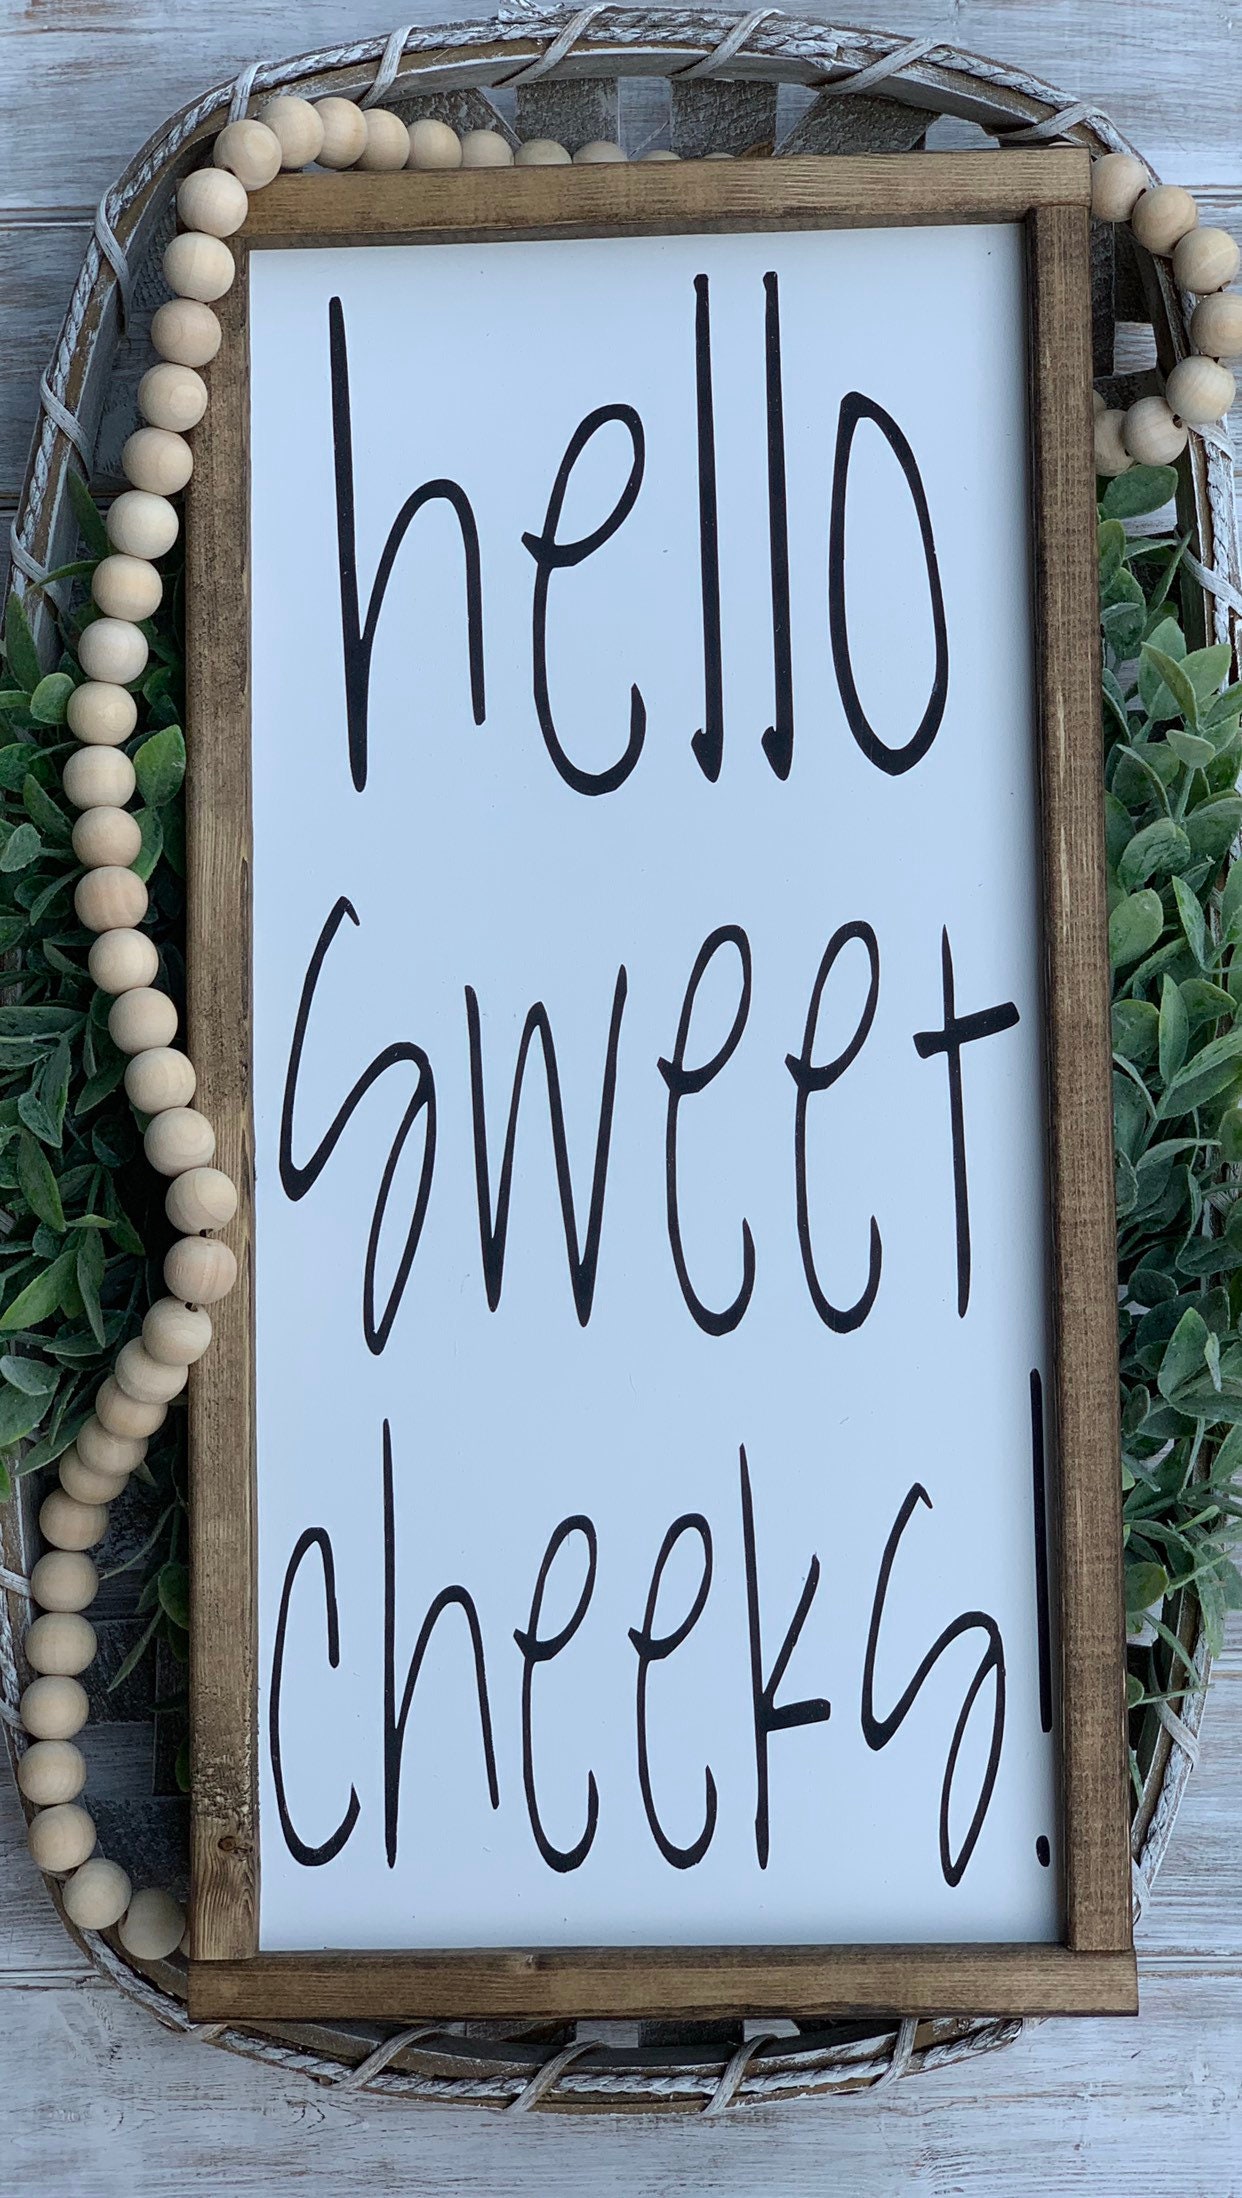 hello
sweet
cheeks!